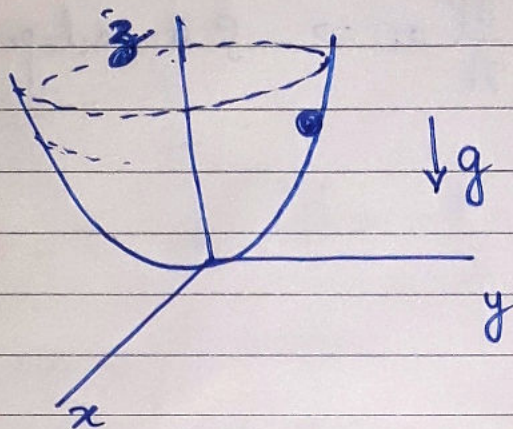 z
g
y
x